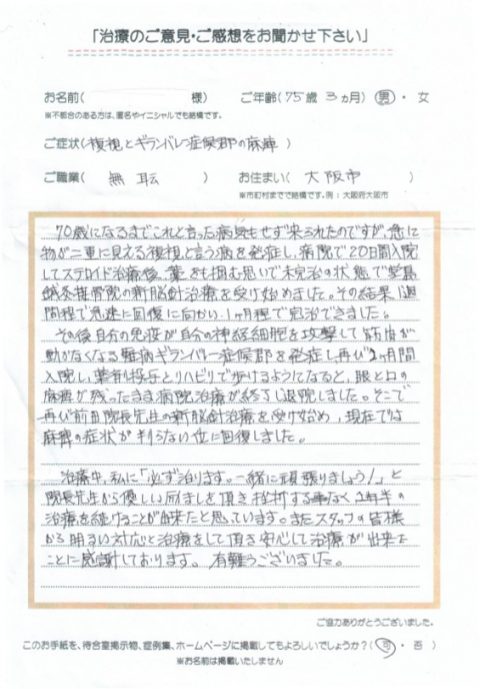 「治療のご意見・ご感想をお聞かせ下さい」
お名前(　　　　　様)　ご年齢(75歳3ヵ月)　男・女
※不都合のある方は、匿名やイニシャルでも結構です。
ご症状(複視とギランバレー症候郡の麻痺)
ご職業(無職)　お住まい(大阪市)
※市町村までで結構です。例：大阪府大阪市
70歳になるまでこれと言った病気もせず来られたのですが、急に
物が二重に見える複視と言う病を発症し、病院で20日間入院
してステロイド治療後、藁をも掴む思いで未完治の状態で
鍼灸整骨院の新脳針治療を受け始めました。その結果1週
間程で急速に回復に向かい、1ヶ月程で完治できました。
その後自分の免疫が自分の神経細胞を攻撃して筋肉が
動かなくなる難病ギランバレー症候郡を発症し再び2ヶ月間
入院し、薬剤投与とリハビリで歩けるようになると、眼と口の
麻痺が残ったまま病院治療が終了し退院しました。そこで
再び前田院長先生の新脳針治療を受け始め、現在では
麻痺の症状が判らない位に回復しました。
治療中、私に「必ず治ります。一緒に頑張りましょう!」と
院長先生から優しい励ましを頂き挫折する事なく、1年半の
治療を続けることが出来たと思っています。またスタッフの皆様
から明るい対応と治療をして頂き安心して治療が出来た
ことに感謝しております。有難うございました。
ご協力ありがとうございました。
このお手紙を、待合室掲示物、症例集、ホームページに掲載してもよろしいでしょうか?(可・否)
※お名前は掲載いたしません